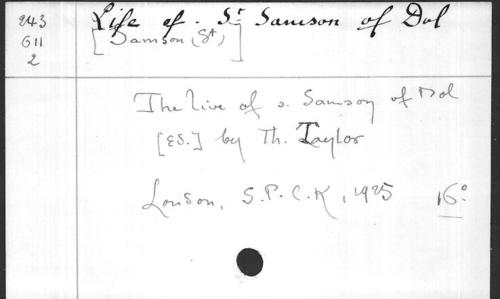 243
G 11
2
Life of. St Samson of Dol
[Samson (St)]
The live of s. Samson of Dol
[Ed.] by Th. Taylor
London, S.P.C.K, 1925 16°